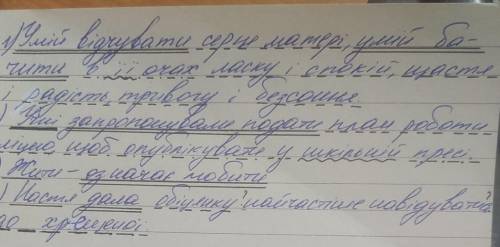 1) Умій відчувати серце матері, умій ба-
чити в її очах ласку і спокій, щастя
і радість, тривогу і безсоння.
) Дні запропонували подати план роботи
щоб опублікувати у шкільній пресі.
) Жити - означає любити
) Настя дала обіцянку найчастіше навідуватися
до хрещеної